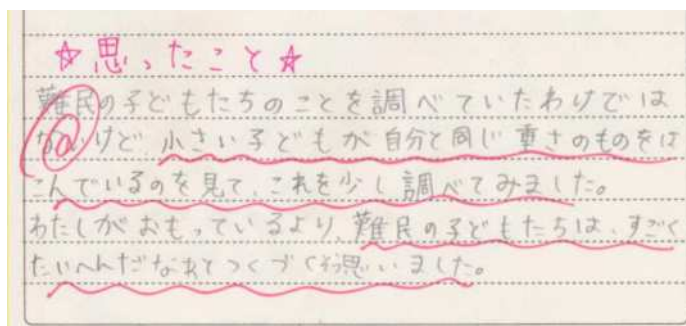 ☆思ったこと☆
難民の子どもたちのことを調べていたわけでは
ないけど 小さい子どもが自分と同じ重さのものをは
こんでいるのを見て、これを少し調べてみました。
わたしがおもっているより、難民の子どもたちは、すごく
たいへんだなあとつくづく思いました。